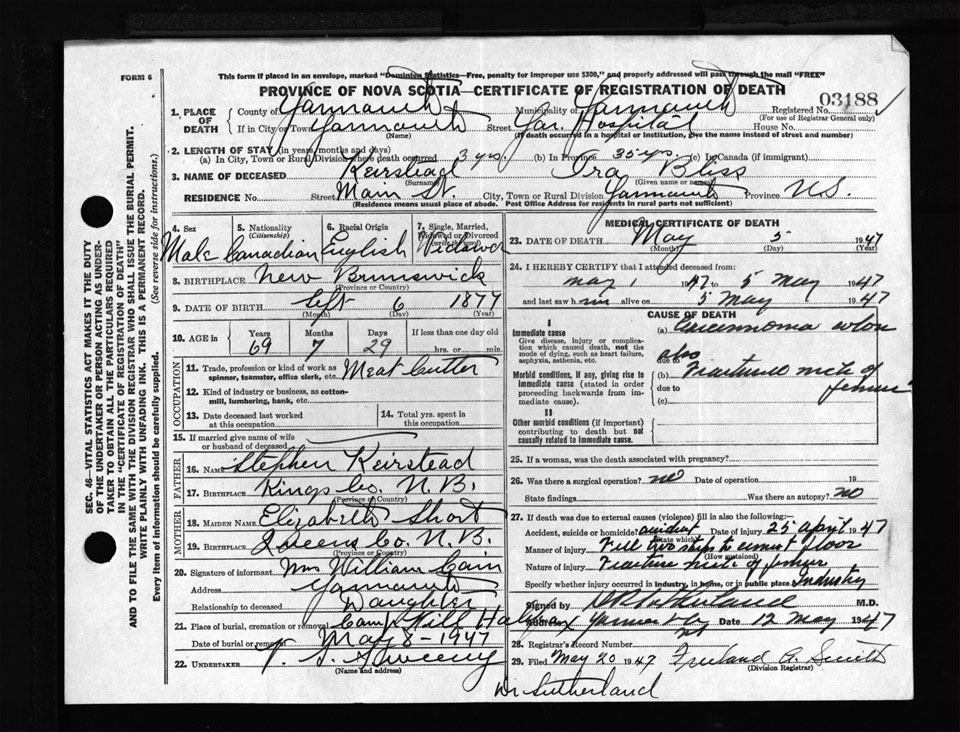 FORM 6
This form if placed in an envelope, marked "Dominion Statistics—Free, penalty for improper use $300," and properly addressed will pass through the mail "FREE"
PROVINCE OF NOVA SCOTIA—CERTIFICATE OF REGISTRATION OF DEATH
03188
1. PLACE OF DEATH County of Yarmouth Municipality of Yarmouth Registered No.
(For use of Registrar General only)
If in City or Town Yarmouth Street Yar. Hospital House No.
(Name) (If death occurred in a hospital or institution, give the name instead of street and number)
2. LENGTH OF STAY (in years, months and days)
(a) In City, Town or Rural Division where death occurred 3 yrs. (b) In Province 35 yrs (c) In Canada (if immigrant)
3. NAME OF DECEASED Keirstead Ira Bliss
(Surname) (Given name or names)
RESIDENCE No. Street Main St. City, Town or Rural Division Yarmouth Province N.S.
(Residence means usual place of abode. Post Office Address for residents in rural parts not sufficient)
4. Sex 5. Nationality (Citizenship) 6. Racial Origin 7. Single, Married, Widowed or Divorced (write the word)
Male Canadian English Widower
8. BIRTHPLACE New Brunswick
(Province or Country)
9. DATE OF BIRTH Sept 6 1877
(Month) (Day) (Year)
10. AGE in Years Months Days If less than one day old
69 7 29 hrs. or min.
OCCUPATION
11. Trade, profession or kind of work as spinner, teamster, office clerk, etc. Meat Cutter
12. Kind of industry or business, as cotton-mill, lumbering, bank, etc.
13. Date deceased last worked at this occupation 14. Total yrs. spent in this occupation
15. If married give name of wife or husband of deceased
FATHER
16. Name Stephen Keirstead
17. Birthplace Kings Co. N.B.
(Province or Country)
MOTHER
18. MAIDEN NAME Elizabeth Short
19. Birthplace Queens Co. N.B.
(Province or Country)
20. Signature of informant Mrs William Cain
Address Yarmouth
Relationship to deceased Daughter
21. Place of burial, cremation or removal Camp Hill Halifax
Date of burial or removal May 8 - 1947
22. UNDERTAKER V. S. Sweeny
(Name and address)
MEDICAL CERTIFICATE OF DEATH
23. DATE OF DEATH May 5 1947
(Month) (Day)
24. I HEREBY CERTIFY that I attended deceased from:
May 1 1947 to 5 May 1947
and last saw him alive on 5 May 1947
CAUSE OF DEATH
I
Immediate cause
Give disease, injury or complication which caused death, not the mode of dying, such as heart failure, asphyxia, asthenia, etc.
(a)
due to
also
Morbid conditions, if any, giving rise to immediate cause (stated in order proceeding backwards from immediate cause).
(b) Fracture neck of femur
due to
(c)
II
Other morbid conditions (if important) contributing to death but not causally related to immediate cause.
25. If a woman, was the death associated with pregnancy?
26. Was there a surgical operation? no Date of operation 19
State findings Was there an autopsy? no
27. If death was due to external causes (violence) fill in also the following:—
Accident, suicide or homicide? accident Date of injury 25 April 1947
(State which)
Manner of injury Fell two steps to cement floor
(How sustained)
Nature of injury Fracture neck of femur
Specify whether injury occurred in industry, in home, or in public place Industry
Signed by Sutherland M.D.
Address Yarmouth NS Date 12 May 1947
28. Registrar's Record Number
29. Filed May 20 1947 Freeland A. Smith
(Division Registrar)
Dr Sutherland
SEC. 46—VITAL STATISTICS ACT MAKES IT THE DUTY
OF THE UNDERTAKER OR PERSON ACTING AS UNDER-
TAKER TO OBTAIN ALL THE PARTICULARS REQUIRED
IN THE "CERTIFICATE OF REGISTRATION OF DEATH"
AND TO FILE THE SAME WITH THE DIVISION REGISTRAR WHO SHALL ISSUE THE BURIAL PERMIT.
WRITE PLAINLY WITH UNFADING INK. THIS IS A PERMANENT RECORD.
Every item of information should be carefully supplied. (See reverse side for instructions.)